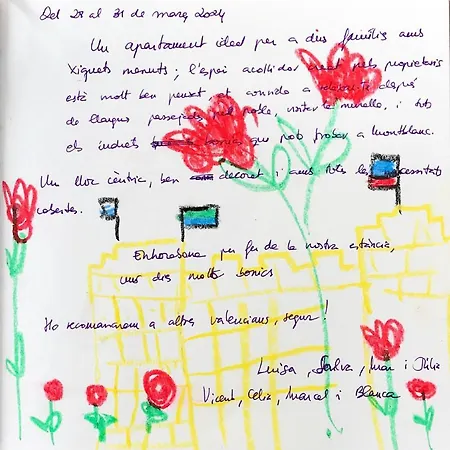 Del 28 al 31 de març 2024
Un apartament ideal per a dues famílies amb
xiquets menuts; l'espai acollidor creat pels propietaris
està molt ben pensat et convida a després
de llargues passejades pel poble, visitar la muralla, i tots
els indrets bonics que pots trobar a Montblanc.
Un lloc cèntric, ben decorat i amb totes les necessitats
cobertes.
Enhorabona per fer de la nostra estància,
uns dies molts bonics
Ho recomanarem a altres valencians, segur!
Luisa, Dalia, Mar i Júlia
Vicent, Celia, Marcel i Blanca